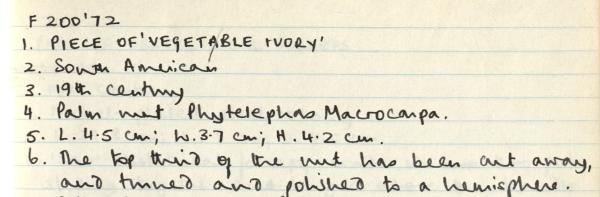 F 200'72
1. PIECE OF 'VEGETABLE IVORY'
2. South American
3. 19th century
4. Palm nut Phytelephas Macrocarpa.
5. L. 4.5 cm; W. 3.7 cm; H. 4.2 cm.
6. The top third of the nut has been cut away,
and turned and polished to a hemisphere.